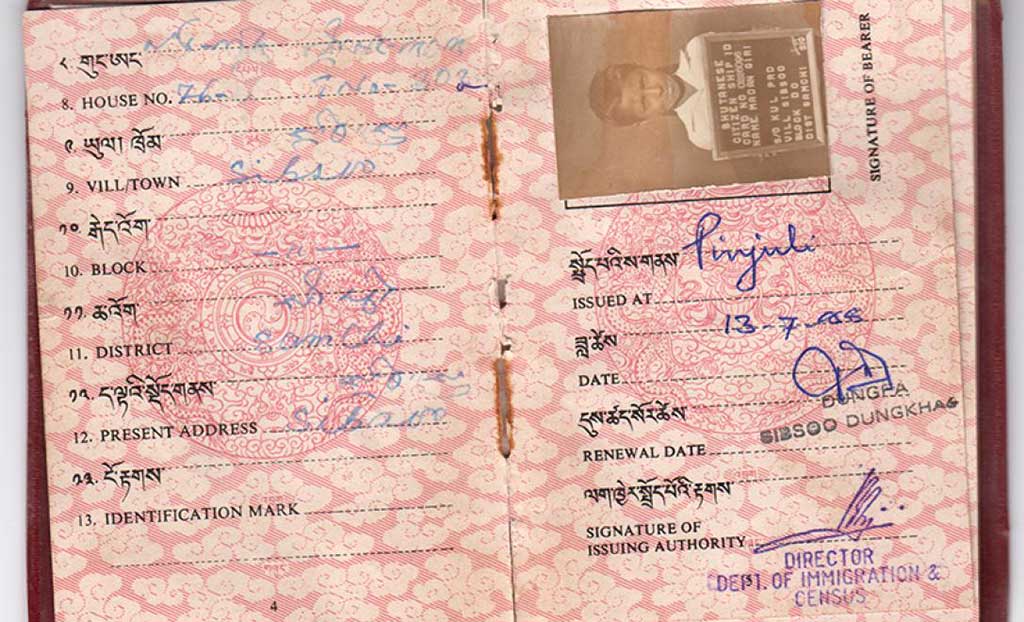 ༨ གུང་ཨང
8. HOUSE NO. 76-
༩ ཡུལ། ཁྲོམ
9. VILL/TOWN Sibsoo
༡༠ རྒེད་འོག
10. BLOCK -"-
༡༡ ཆ་འོག
11. DISTRICT Samchi
༡༢ ད་ལྟའི་སྡོད་གནས
12. PRESENT ADDRESS Sibsoo
༡༣ ངོ་རྟགས
13. IDENTIFICATION MARK
4
BHUTANESE
CITIZEN SHIP ID
CARD NO
NAME MADAN GIRI
S/O KUL PRD
VILL SIBSOO
BLOCK DO
DIST SAMCHI
SIGNATURE OF BEARER
སྤྲོད་པའི་ས་གནས
ISSUED AT Pinjuli
ཟླ་ཚེས
DATE 13-7-
DUNGPA
SIBSOO DUNGKHAG
དུས་ཚད་སོར་ཚེས
RENEWAL DATE
ལག་ཁྱེར་སྤྲོད་པོའི་རྟགས
SIGNATURE OF
ISSUING AUTHORITY
DIRECTOR
DEPT. OF IMMIGRATION &
CENSUS